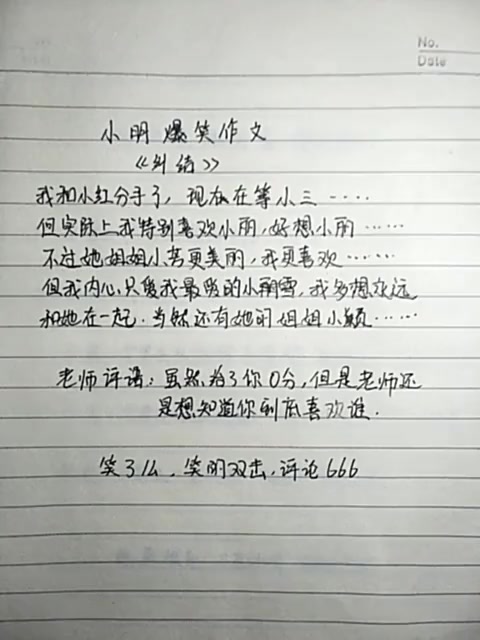 No.
Date
小明爆笑作文
《纠结》
我和小红分手了，现在在等小三····
但实际上我特别喜欢小丽，好想小丽……
不过她姐姐小芳更美丽，我更喜欢……
但我内心只爱我最爱的小雪，我多想永远
和她在一起．当然还有她的姐姐小颖……
老师评语：虽然给了你0分，但是老师还
是想知道你到底喜欢谁．
笑了么，笑的双击，评论666